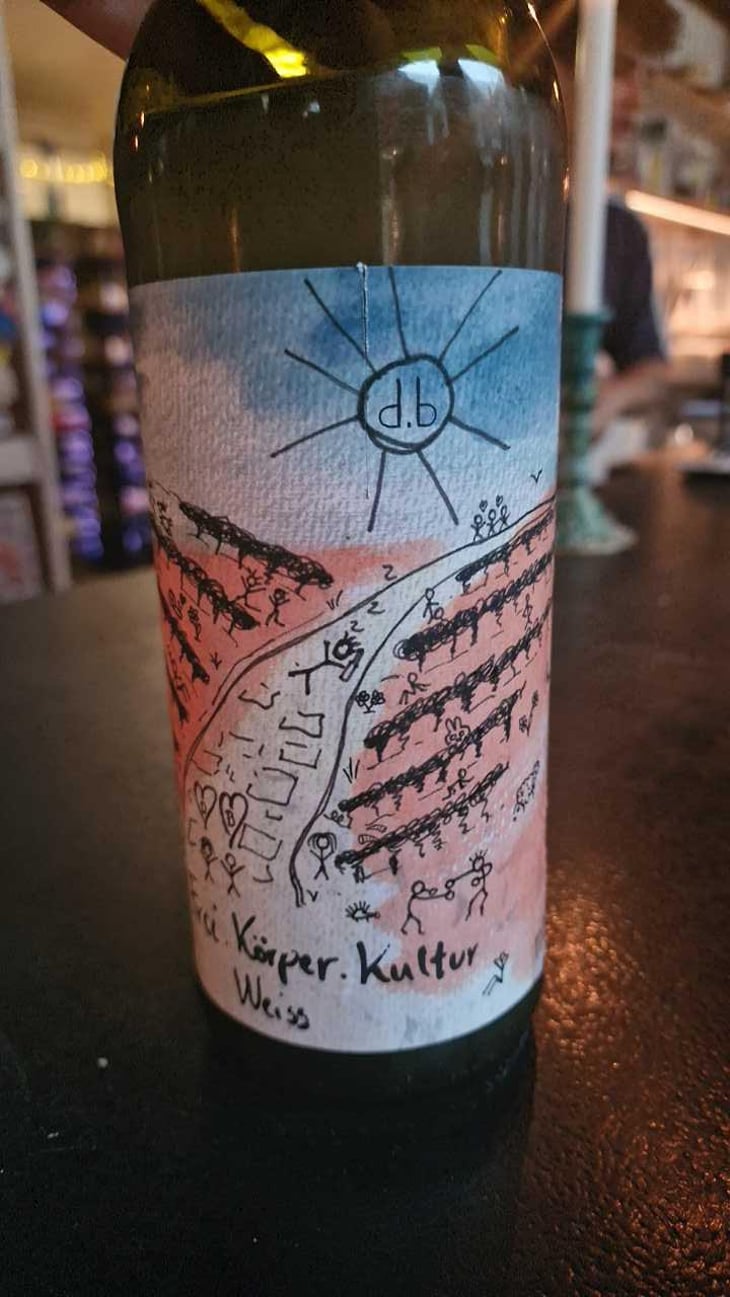 d.b
Frei. Körper. Kultur
Weiss